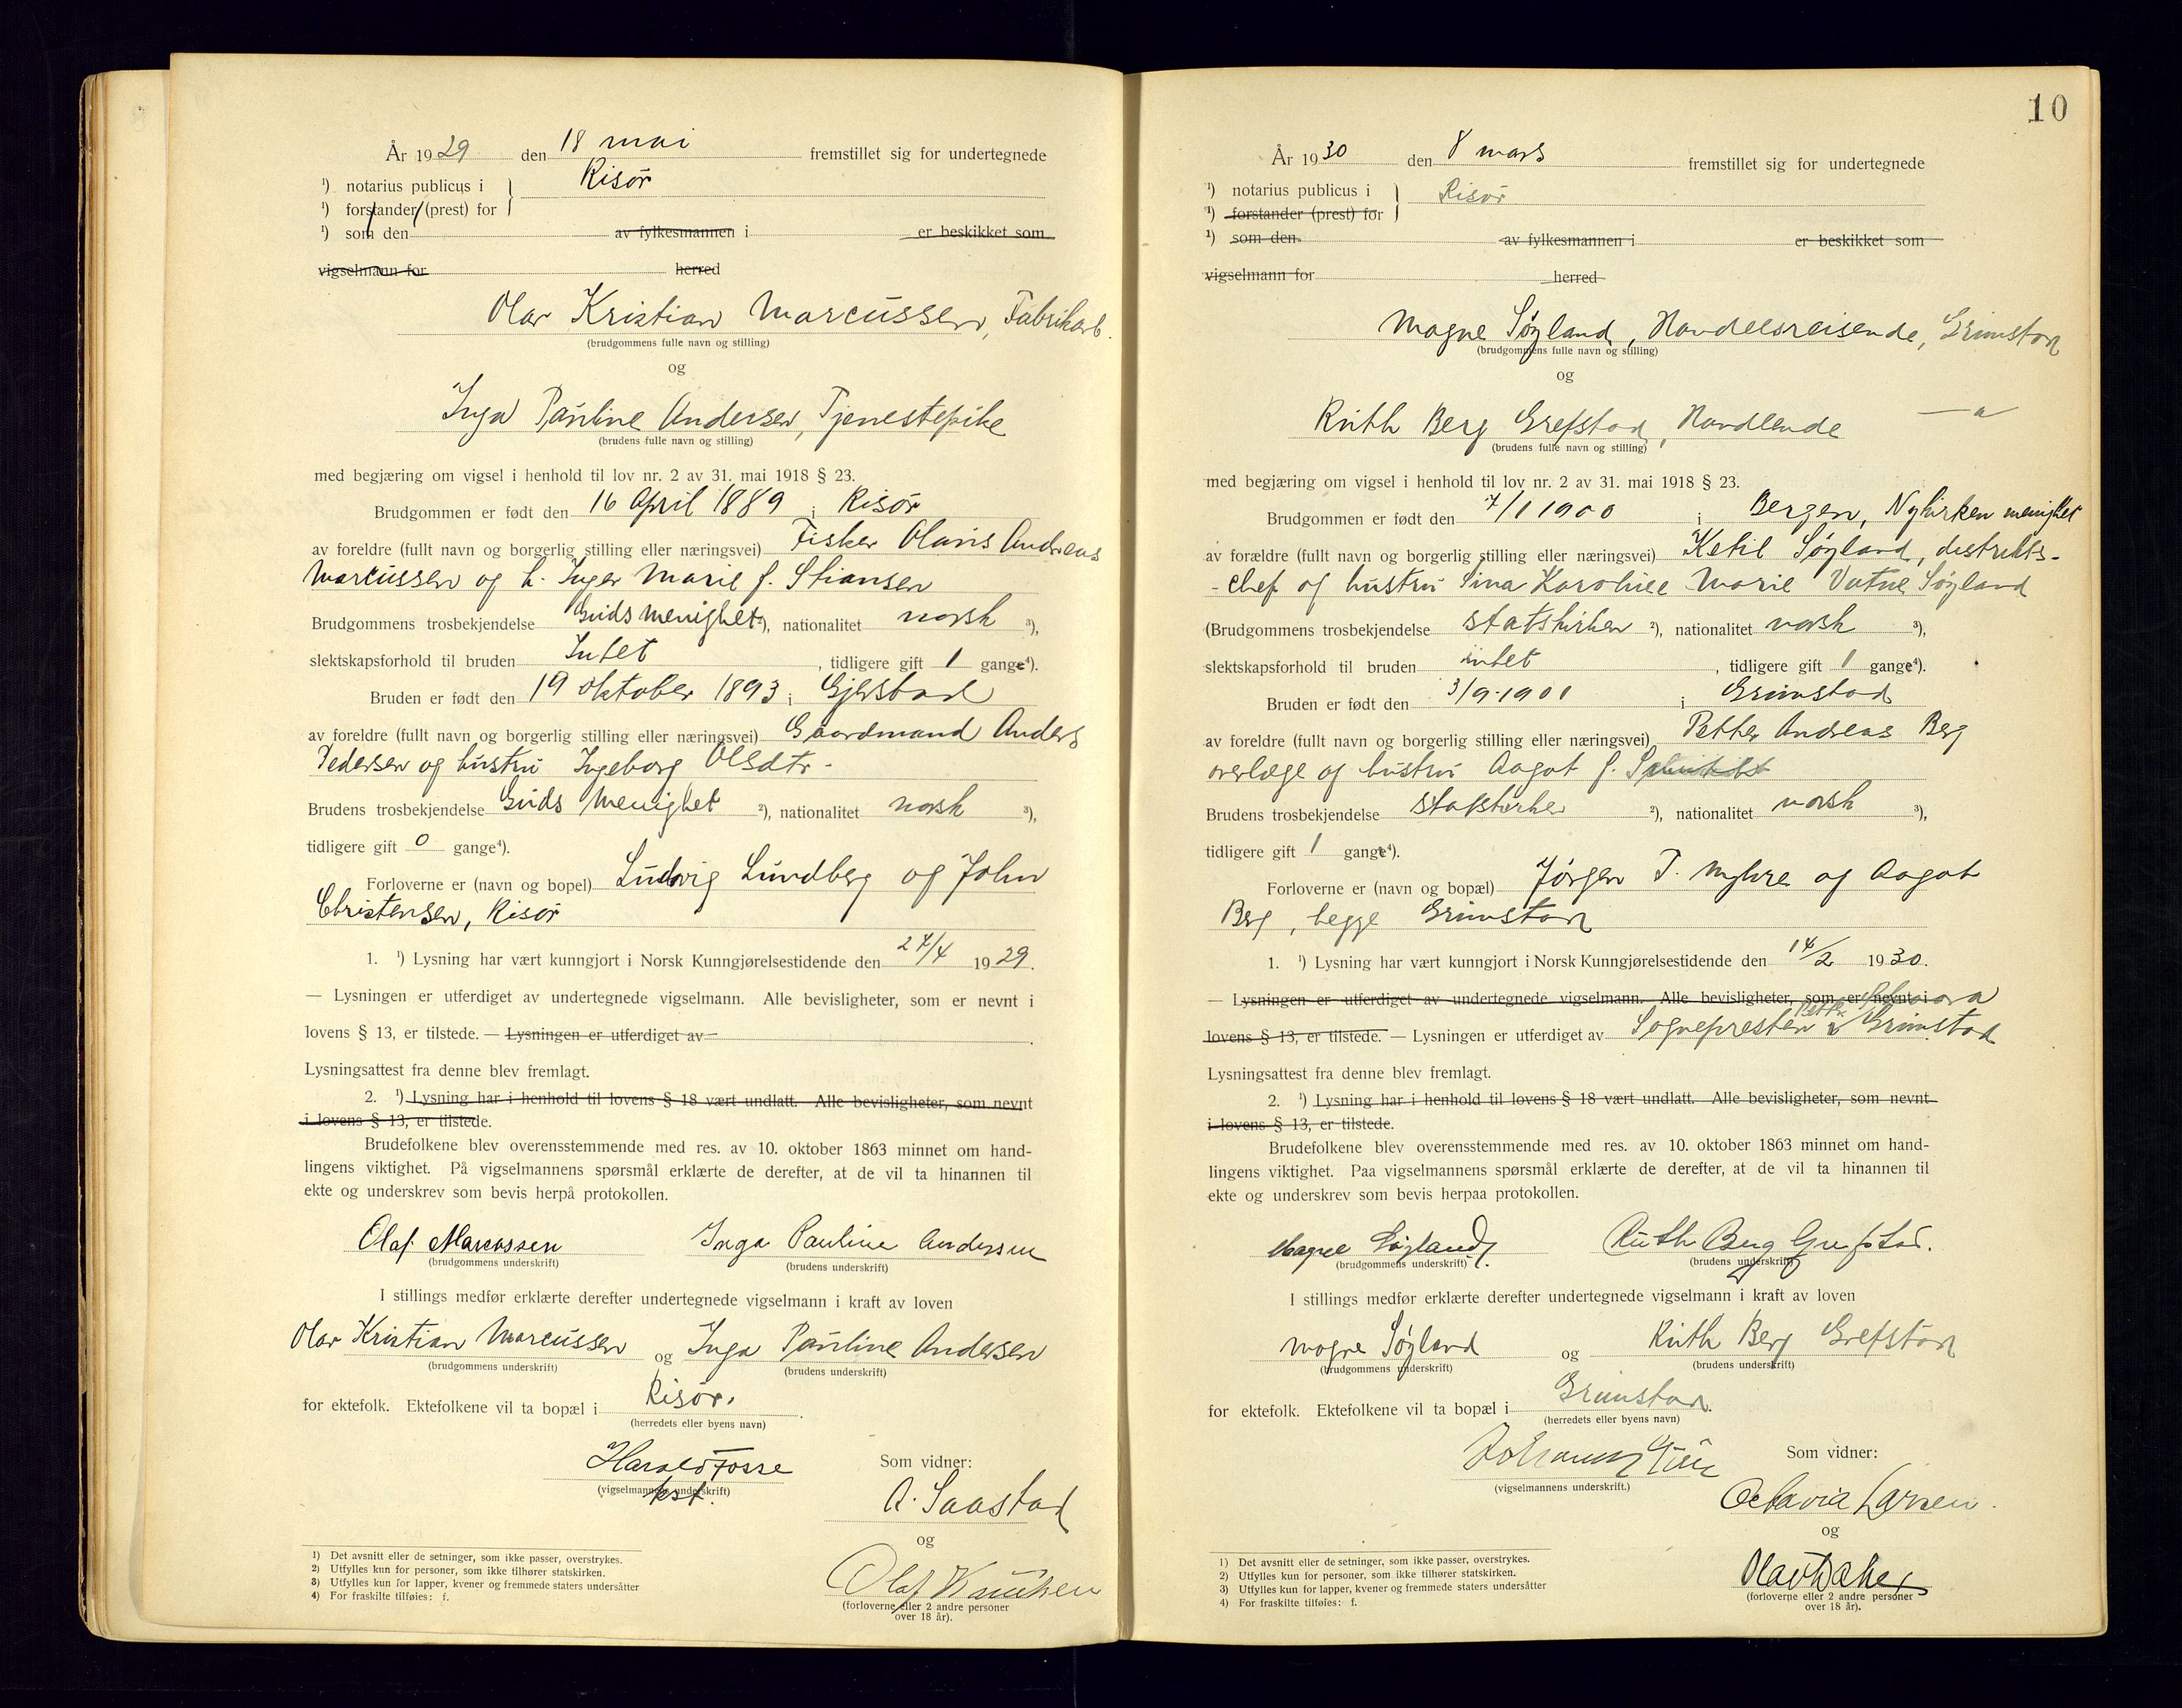 År 1929 den 18 mai fremstillet sig for undertegnede
¹) notarius publicus i } Risør
¹) forstander (prest) for
¹) som den av fylkesmannen i er beskikket som
vigselmann for herred
Olav Kristian Marcussen, Fabrikarb.
(brudgommens fulle navn og stilling)
og
Inga Pauline Andersen, Tjenestepike
(brudens fulle navn og stilling)
med begjæring om vigsel i henhold til lov nr. 2 av 31. mai 1918 § 23.
Brudgommen er født den 16 April 1889 i Risør
av foreldre (fullt navn og borgerlig stilling eller næringsvei) Fisker Olavis Andreas
Marcussen og h. Inger Marie f. Stiansen
Brudgommens trosbekjendelse Guds menighet ²), nationalitet norsk ³),
slektskapsforhold til bruden Intet, tidligere gift 1 gange⁴).
Bruden er født den 19 oktober 1893 i Gjerstad
av foreldre (fullt navn og borgerlig stilling eller næringsvei) Gaardmand Anders
Pedersen og hustru Ingeborg Olsdtr.
Brudens trosbekjendelse Guds Menighet ²), nationalitet norsk ³),
tidligere gift 0 gange⁴).
Forloverne er (navn og bopel) Ludvig Lundberg og John
Christensen, Risør
1. ¹) Lysning har vært kunngjort i Norsk Kunngjørelsestidende den 24/4 1929.
— Lysningen er utferdiget av undertegnede vigselmann. Alle bevisligheter, som er nevnt i
lovens § 13, er tilstede. — Lysningen er utferdiget av
Lysningsattest fra denne blev fremlagt.
2. ¹) Lysning har i henhold til lovens § 18 vært undlatt. Alle bevisligheter, som nevnt
i lovens § 13, er tilstede.
Brudefolkene blev overensstemmende med res. av 10. oktober 1863 minnet om hand-
lingens viktighet. På vigselmannens spørsmål erklærte de derefter, at de vil ta hinannen til
ekte og underskrev som bevis herpå protokollen.
Olaf Marcussen Inga Pauline Andersen
(brudgommens underskrift) (brudens underskrift)
I stillings medfør erklærte derefter undertegnede vigselmann i kraft av loven
Olav Kristian Marcussen og Inga Pauline Andersen
(brudgommens underskrift) (brudens underskrift)
for ektefolk. Ektefolkene vil ta bopæl i Risør.
(herredets eller byens navn)
Harald Fosse Som vidner:
(vigselmannens underskrift)
kst.
A. Saastad
og
Olaf
(forloverne eller 2 andre personer
over 18 år).
1) Det avsnitt eller de setninger, som ikke passer, overstrykes.
2) Utfylles kun for personer, som ikke tilhører statskirken.
3) Utfylles kun for lapper, kvener og fremmede staters undersåtter
4) For fraskilte tilføies: f.
10
År 1930 den 8 mars fremstillet sig for undertegnede
¹) notarius publicus i } Risør
¹) forstander (prest) for
¹) som den av fylkesmannen i er beskikket som
vigselmann for herred
Magne Søyland, Handelsreisende, Grimstad
(brudgommens fulle navn og stilling)
og
Ruth Berg Grefstad, Handlende —"—
(brudens fulle navn og stilling)
med begjæring om vigsel i henhold til lov nr. 2 av 31. mai 1918 § 23.
Brudgommen er født den 7/1 1900 i Bergen, Nykirken menighet
av forældre (fullt navn og borgerlig stilling eller næringsvei) Ketil Søyland, distrikts-
-chef og hustru Sina Karoline Marie Vatne Søyland
(Brudgommens trosbekjendelse statskirken ²), nationalitet norsk ³),
slektskapsforhold til bruden intet, tidligere gift 1 gange⁴).
Bruden er født den 3/9-1901 i Grimstad
av foreldre (fullt navn og borgerlig stilling eller næringsvei) Petter Andreas Berg
overlæge og hustru Aagot f.
Brudens trosbekjendelse statskirken ²), nationalitet norsk ³),
tidligere gift 1 gange⁴).
Forloverne er (navn og bopæl) Jørgen T. Myhre og Aagot
Berg, begge Grimstad
1. ¹) Lysning har vært kunngjort i Norsk Kunngjørelsestidende den 14/2 1930.
— Lysningen er utferdiget av undertegnede vigselmann. Alle bevisligheter, som er nevnt i
lovens § 13, er tilstede. — Lysningen er utferdiget av Sognepresten Grimstad
Lysningsattest fra denne blev fremlagt.
2. ¹) Lysning har i henhold til lovens § 18 vært undlatt. Alle bevisligheter, som nevnt
i lovens § 13, er tilstede.
Brudefolkene blev overensstemmende med res. av 10. oktober 1863 minnet om hand-
lingens viktighet. Paa vigselmannens spørsmål erklærte de derefter, at de vil ta hinannen til
ekte og underskrev som bevis herpaa protokollen.
Magne Søyland Ruth Berg Grefstad.
(brudgommens underskrift) (brudens underskrift)
I stillings medfør erklærte derefter undertegnede vigselmann i kraft av loven
Magne Søyland og Ruth Berg Grefstad
(brudgommens underskrift) (brudens underskrift)
for ektefolk. Ektefolkene vil ta bopæl i Grimstad.
(herredets eller byens navn)
Som vidner:
(vigselmannens underskrift.)
Octavia Larsen.
og
Olav
(forloverne eller 2 andre personer
over 18 år).
1) Det avsnitt eller de setninger, som ikke passer, overstrykes.
2) Utfylles kun for personer, som ikke tilhører statskirken.
3) Utfylles kun for lapper, kvener og fremmede staters undersåtter
4) For fraskilte tilføies: f.